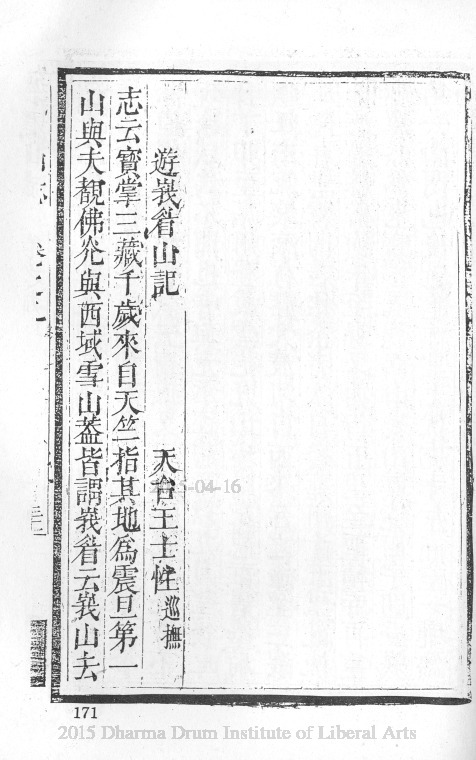 遊峩睂山記
天台王士性巡撫
志云寳掌三藏千歲來自天竺指其地為震旦第一
山與夫覩佛光與西域雪山葢皆謂峩睂云峩山去
171
2015-04-16
2015 Dharma Drum Institute of Liberal Arts